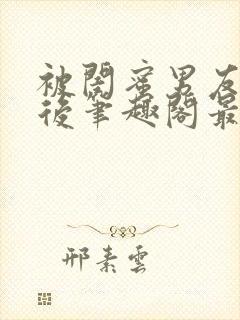 被閨蜜男友
後筆趣閣最
邢素雲